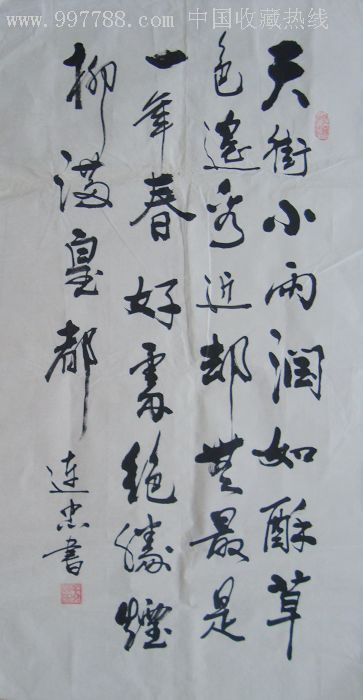 www.997788.com 中国收藏热线
天街小雨潤如酥草
色遥看近却無最是
一年春好處絶勝煙
柳滿皇都
連忠書